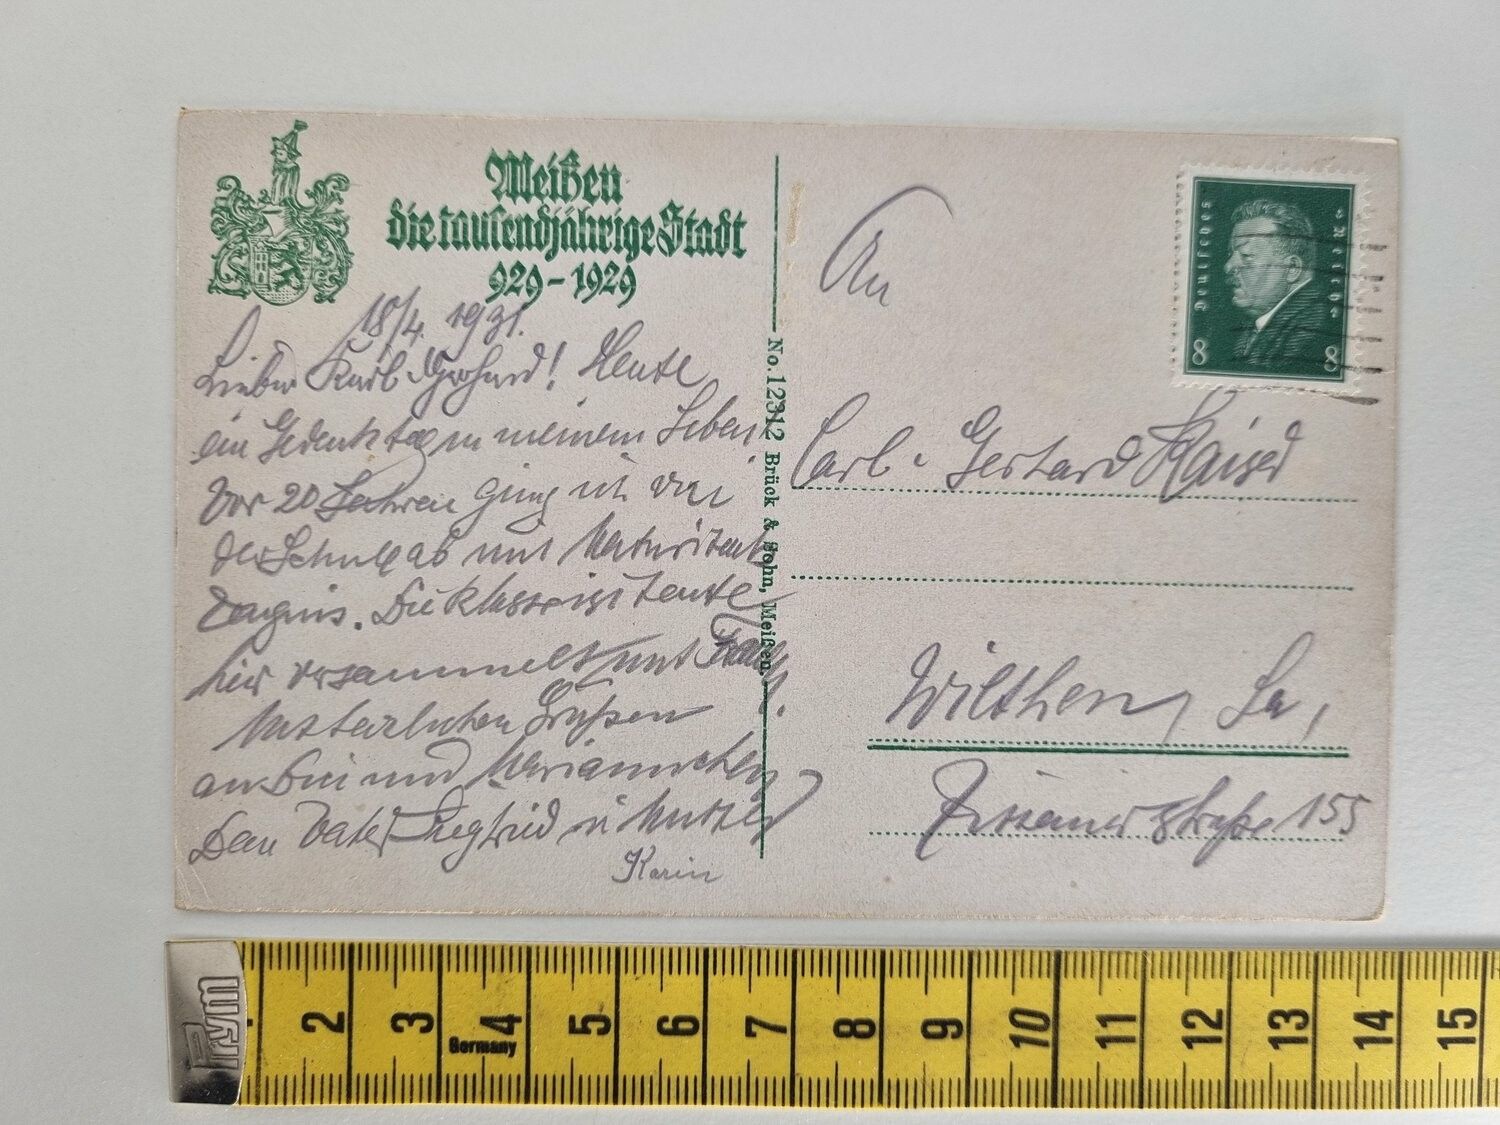 Meißen
die tausendjährige Stadt
929 – 1929
18/4. 1931.
Lieber Karl-Gerhard! Heute
ein Gedenktag in meinem Leben
Vor 20 Jahren ging ich von
der Schule ab mit Maturitäts
zeugnis. Die Klasse ist heute
hier versammelt mit
Mit herzlichen Grüßen
an Dich und Mariannchen
Dein Vater Siegfried u Mutter
Karin
No. 12312 Brück & Sohn, Meißen.
Deutsches Reich
8 8
An
Carl-Gerhard Kaiser
Wilthen, Sa,
Zittauerstraße 155
Prym
2 3 4 5 6 7 8 9 10 11 12 13 14 15
Germany